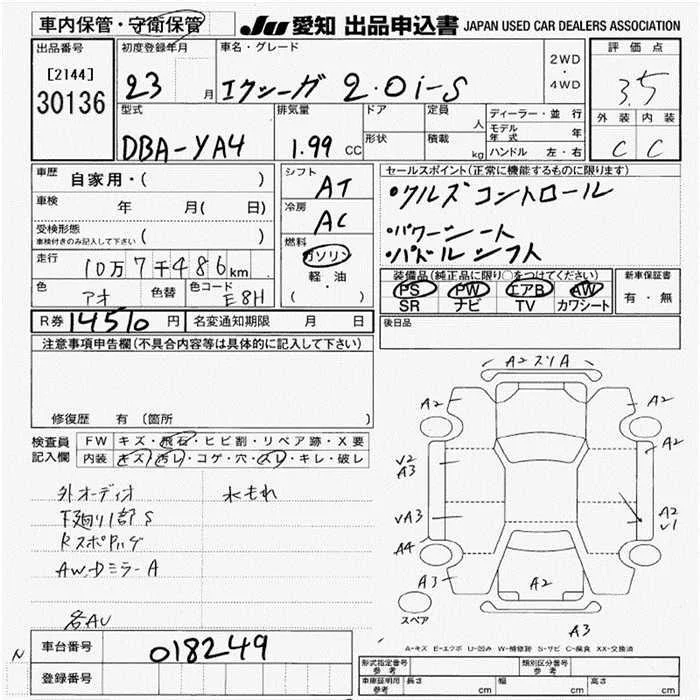 車内保管・守衛保管 JU 愛知 出品申込書 JAPAN USED CAR DEALERS ASSOCIATION
出品番号 初度登録年月 車名・グレード 2WD・4WD 評価点
[2144] 23 月 エクシーガ 2.0i-S 3.5
30136 型式 排気量 ドア 定員 人 ディーラー・並行 外装 内装
DBA-YA4 1.99 CC 形状 積載 kg モデル年式 年 C C
ハンドル 左・右
車歴 自家用・( ) シフト AT セールスポイント(正常に機能するものに限ります)
車検 年 月( 日) 冷房 AC ・クルズコントロール
受検形態 ( ) ・パワーシート
車検付きのみ記入して下さい 燃料 ・パドルシフト
走行 10万7千486km ガソリン 装備品(純正品に限り○をつけてください) 新車保証書
軽・油 PS PW エアB AW 有・無
色 アオ 色替 色コード E8H ( ) SR ナビ TV カワシート
R券 14510円 名変通知期限 月 日 後日品
注意事項申告欄(不具合内容等は具体的に記入して下さい)
修復歴 有 (箇所 )
検査員 FW キズ・飛石・ヒビ割・リペア跡・X要
記入欄 内装 キズ・汚レ・コゲ・穴・スレ・キレ・破レ
外オーディオ 水もれ
下廻り1部S
AW.DミラーA
各AU
A2スリA
A2 A2
V2 A2
A3
VA3 A2
V1
A4
A3 A2 A2
スペア A3
A-キズ E-エクボ U-凹み W-補修跡 S-サビ C-腐食 XX-交換済
N 車台番号 018249
登録番号
形式指定番号 参考 類別区分番号 参考
車庫証明用 参考 長さ cm 幅 cm 高さ cm